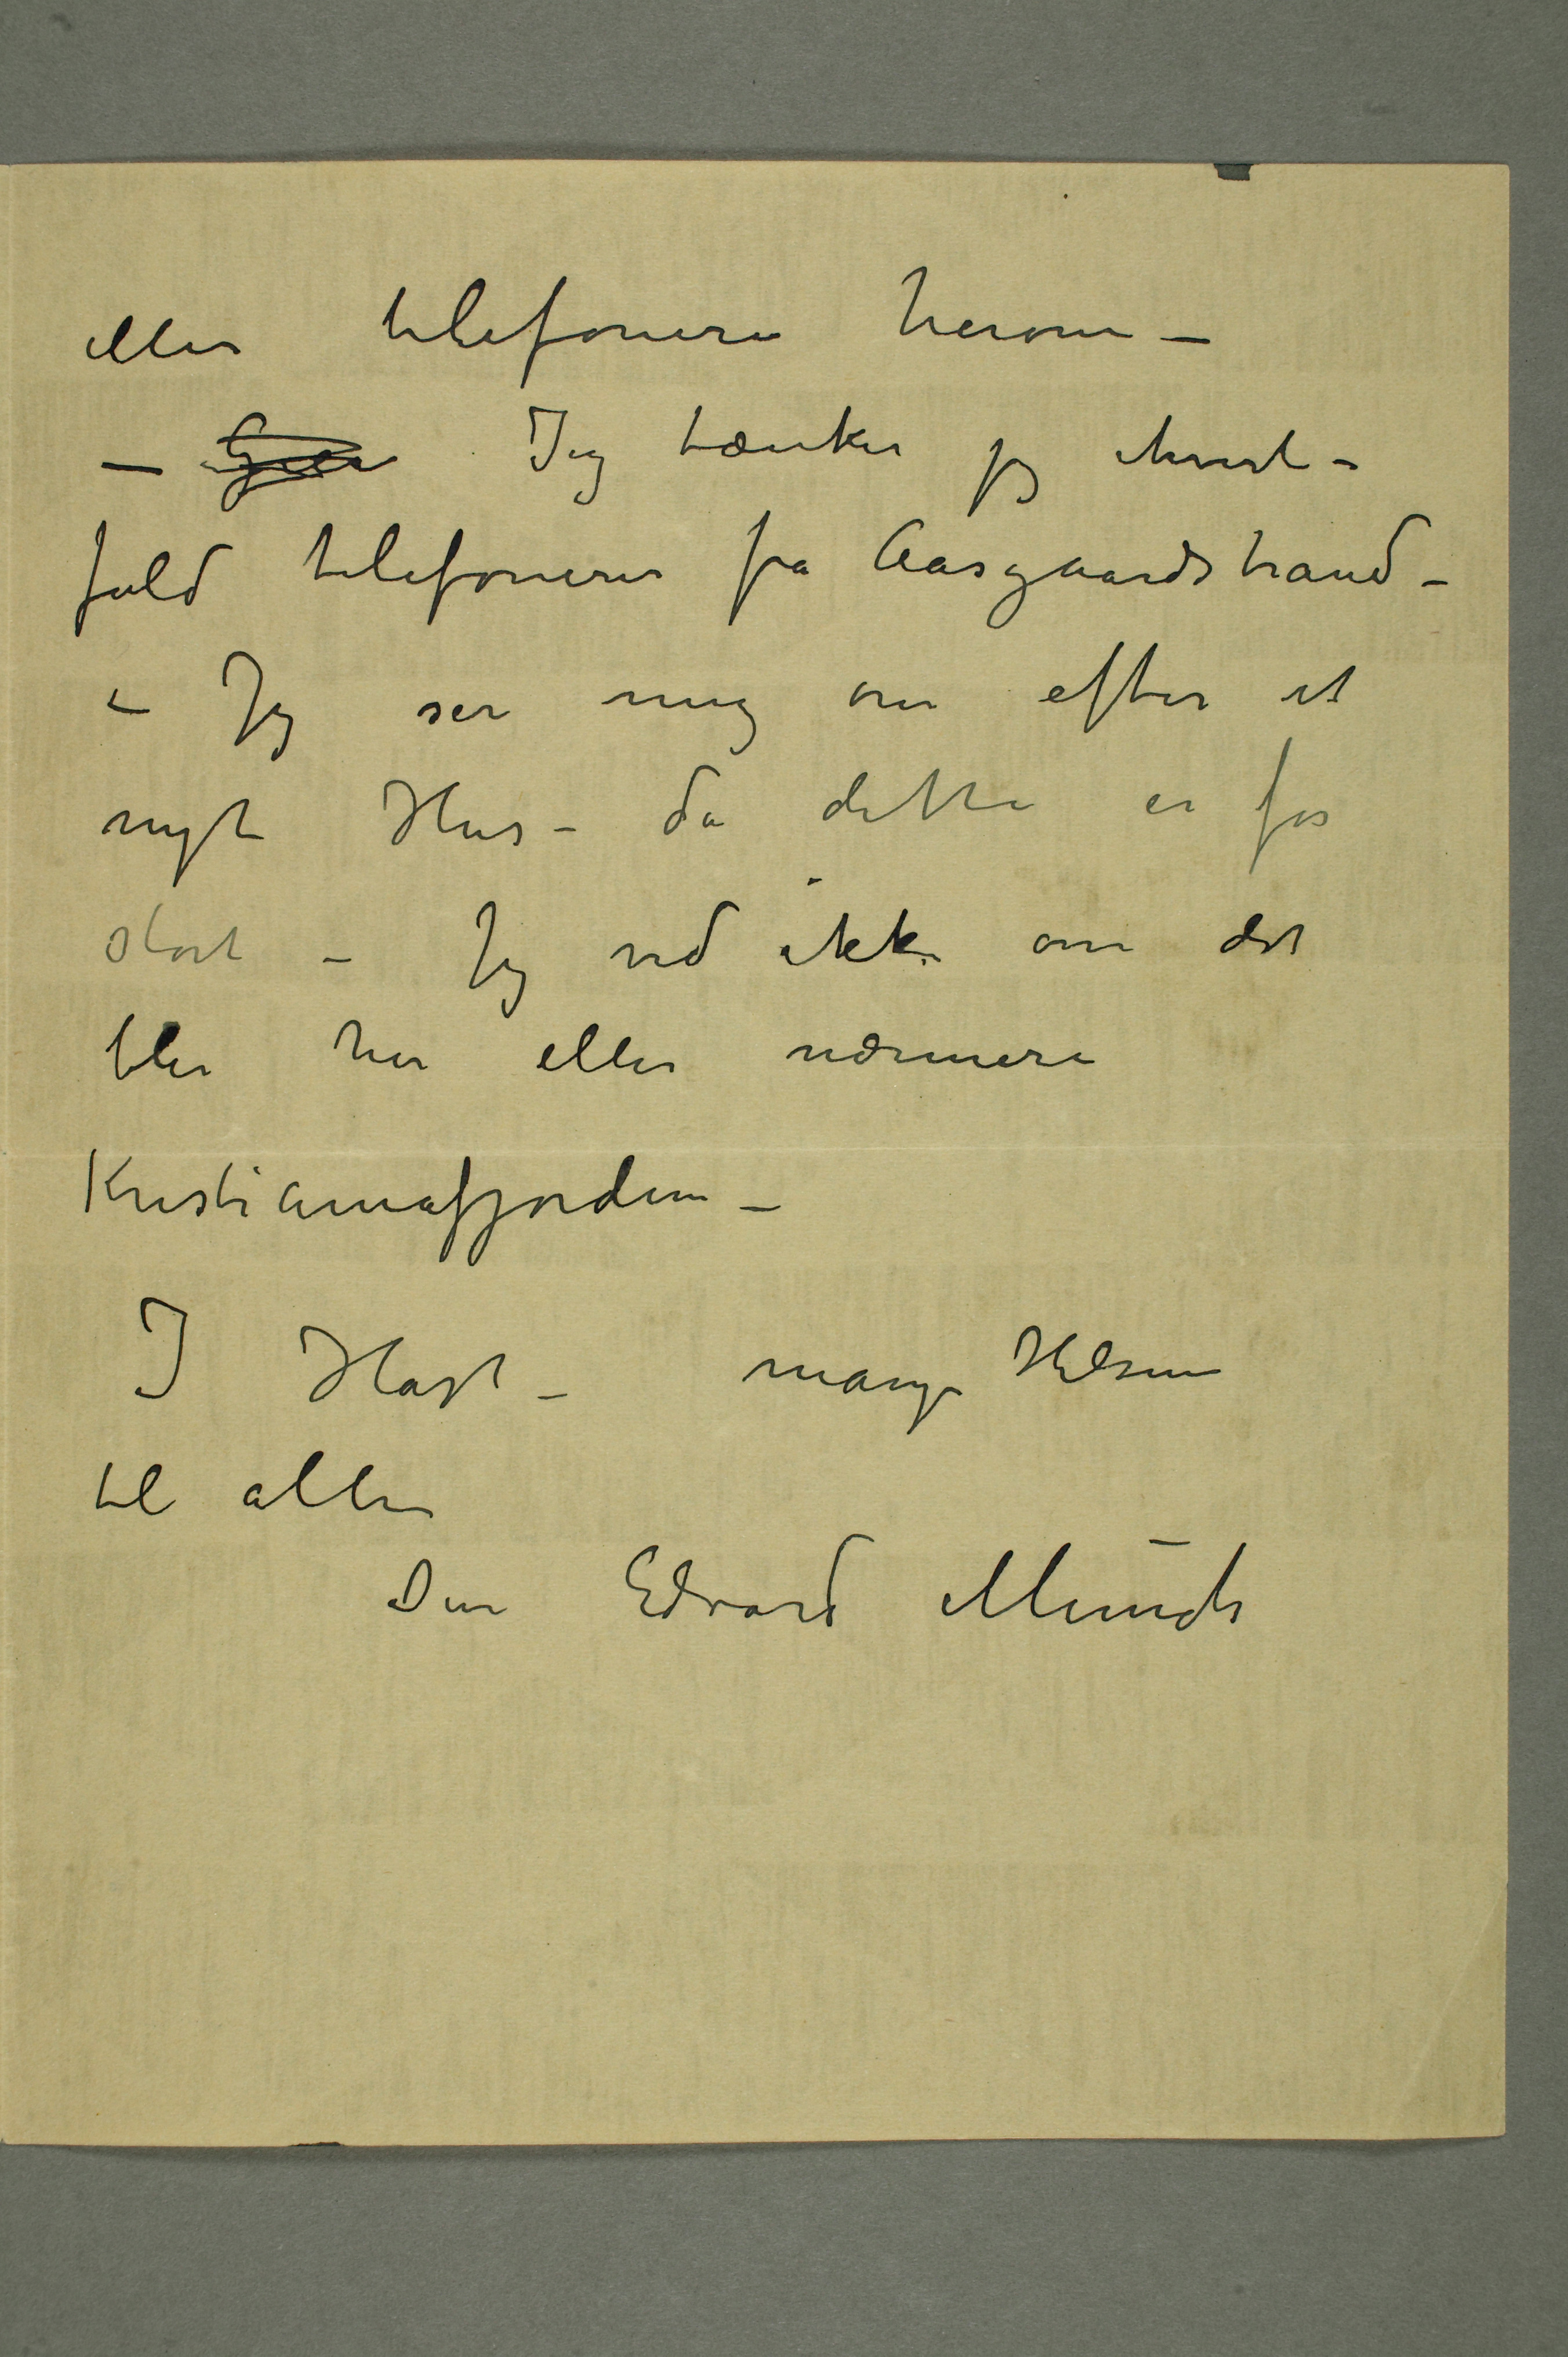 eller telefonere herom –
– Jeg tænker jeg ihvert-
fald telefonerer fra Aasgaardstrand –
– Jeg ser mig om efter et
nyt Hus – da dette er for
stort – Jeg ved ikke om det
blir her eller nærmere
Kristianiafjorden –
I Hast – mange Hilsener
til alle
Din Edvard Munch